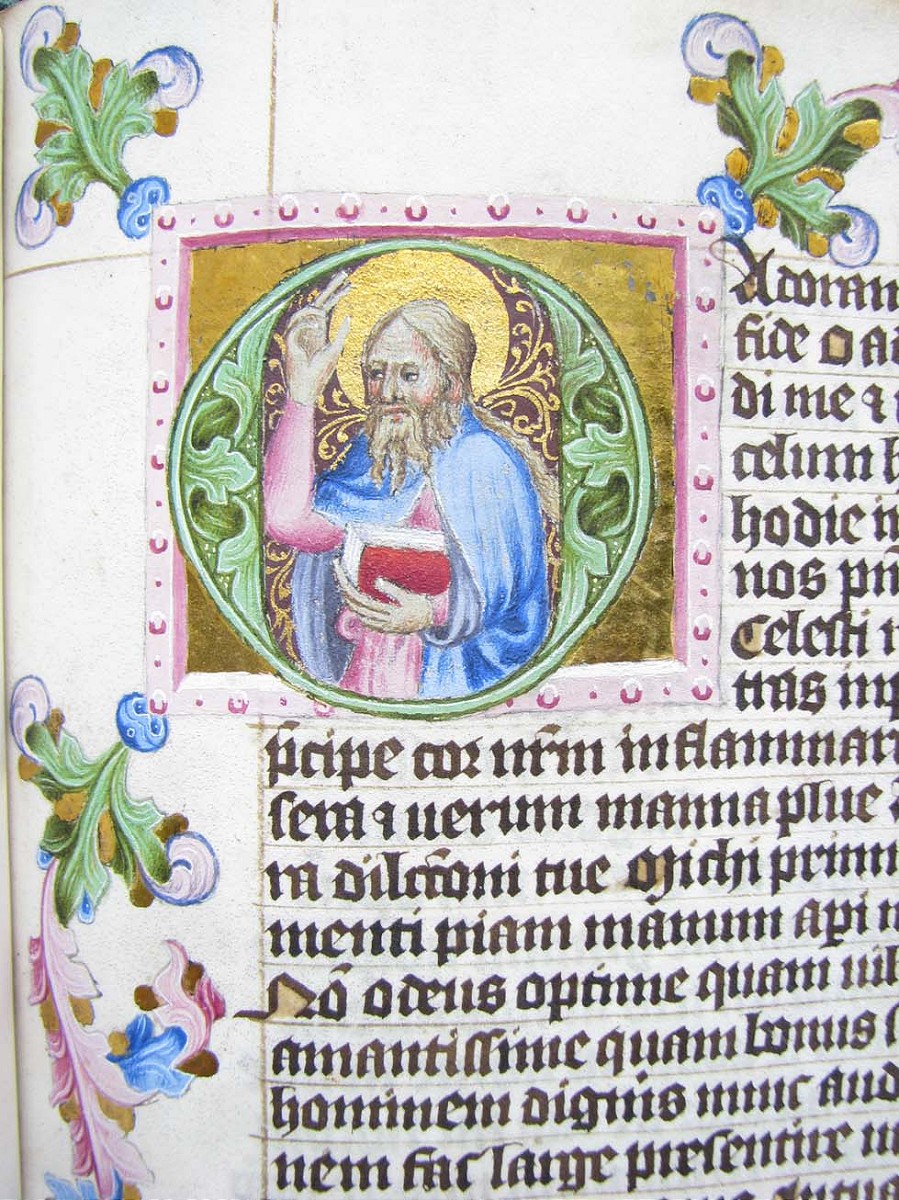 Adoran
fide o a
di me ⁊
celum h
hodie in
nos pn̄
Celesti
tras
ſcipe cor nr̄m inflammar
ſera ⁊ uerum manna plue
ra dilcc̄oni tue Michi primi
menti piam manum api
No᷑ o deus optime quam
amantiſſime quam bonus ſ
hominem dignis nunc aud
nem fac large preſentire